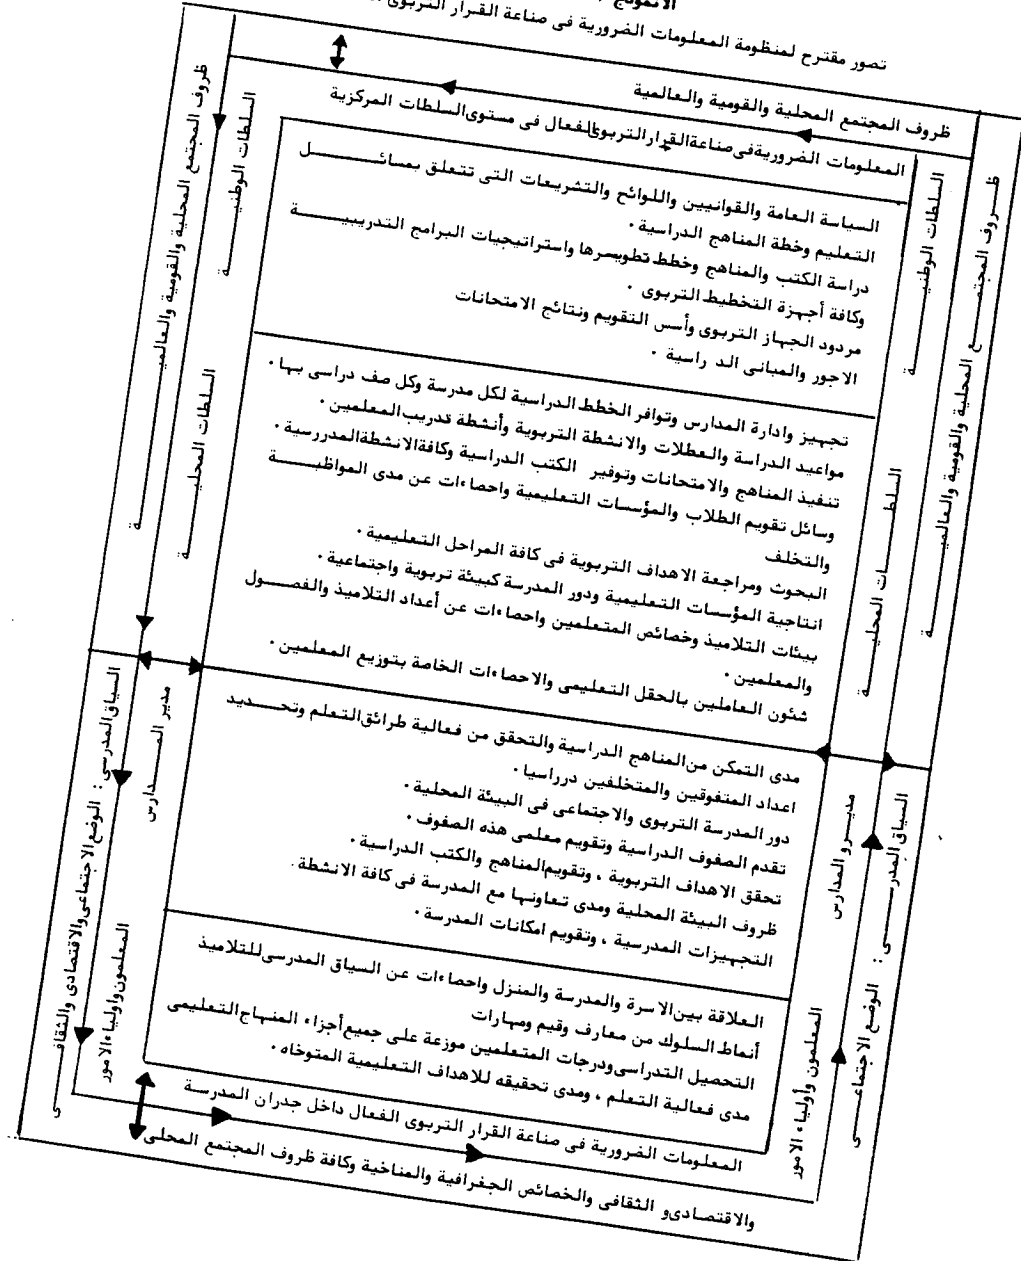 الانموذج
تصور مقترح لمنظومة المعلومات الضرورية فى صناعة القرار التربوى
ظروف المجتمع المحلية والقومية والعالمية
المعلومات الضرورية فى صناعة القرار التربوى الفعال فى مستوى السلطات المركزية
السياسة العامة والقوانيين واللوائح والتشريعات التى تتعلق بمسائل
التعليم وخطة المناهج الدراسية .
دراسة الكتب والمناهج وخطط تطويرها واستراتيجيات البرامج التدريبية
وكافة أجهزة التخطيط التربوى .
مردود الجهاز التربوى وأسس التقويم ونتائج الامتحانات
الاجور والمبانى الد راسية .
تجهيز وادارة المدارس وتوافر الخطط الدراسية لكل مدرسة وكل صف دراسى بها .
مواعيد الدراسة والعطلات والانشطة التربوية وأنشطة تدريب المعلمين .
تنفيذ المناهج والامتحانات وتوفير الكتب الدراسية وكافة الانشطة المدررسية .
وسائل تقويم الطلاب والمؤسسات التعليمية واحصاءات عن مدى المواظبة
والتخلف
البحوث ومراجعة الاهداف التربوية فى كافة المراحل التعليمية .
انتاجية المؤسسات التعليمية ودور المدرسة كبيئة تربوية واجتماعية .
بيئات التلاميذ وخصائص المتعلمين واحصاءات عن أعداد التلاميذ والفصول
والمعلمين .
شئون العاملين بالحقل التعليمى والاحصاءات الخاصة بتوزيع المعلمين .
مدى التمكن من المناهج الدراسية والتحقق من فعالية طرائق التعلم وتحديد
اعداد المتفوقين والمتخلفين درراسيا .
دور المدرسة التربوى والاجتماعى فى البيئة المحلية .
تقدم الصفوف الدراسية وتقويم معلمى هذه الصفوف .
تحقق الاهداف التربوية ، وتقويم المناهج والكتب الدراسية .
ظروف البيئة المحلية ومدى تعاونها مع المدرسة فى كافة الانشطة .
التجهيزات المدرسية ، وتقويم امكانات المدرسة .
العلاقة بين الاسرة والمدرسة والمنزل واحصاءات عن السياق المدرسى للتلاميذ
أنماط السلوك من معارف وقيم ومهارات
التحصيل التدراسى ودرجات المتعلمين موزعة على جميع أجزاء المنهاج التعليمى
مدى فعالية التعلم ، ومدى تحقيقه للاهداف التعليمية المتوخاه .
المعلومات الضرورية فى صناعة القرار التربوى الفعال داخل جدران المدرسة
والاقتصادى و الثقافى والخصائص الجغرافية والمناخية وكافة ظروف المجتمع المحلى
ظروف المجتمع المحلية والقومية والعالمية
السلطات الوطنية
السلطات المحلية
مديرو المدارس
المعلمون وأولياء الامور
السياق المدرسى : الوضع الاجتماعى
ظروف المجتمع المحلية والقومية والعالمية
السلطات الوطنية
السلطات المحلية
مدير المدارس
المعلمون واولياء الامور
السياق المدرسى : الوضع الاجتماعى والاقتصادى والثقافى